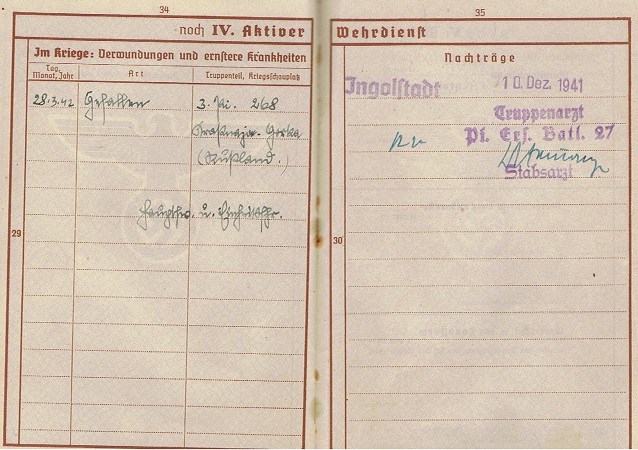 34
noch IV. Aktiver
Im Kriege: Verwundungen und ernstere Krankheiten
Tag, Monat, Jahr
Art
Truppenteil, Kriegsschauplatz
28.3.42 Gefallen 3. Pi. 268
Gorka
(Rußland.)
Hauptfw. u.
29
35
Wehrdienst
Nachträge
Ingolstadt 10. Dez. 1941
Truppenarzt
Pi. Ers. Batl. 27
Stabsarzt
30